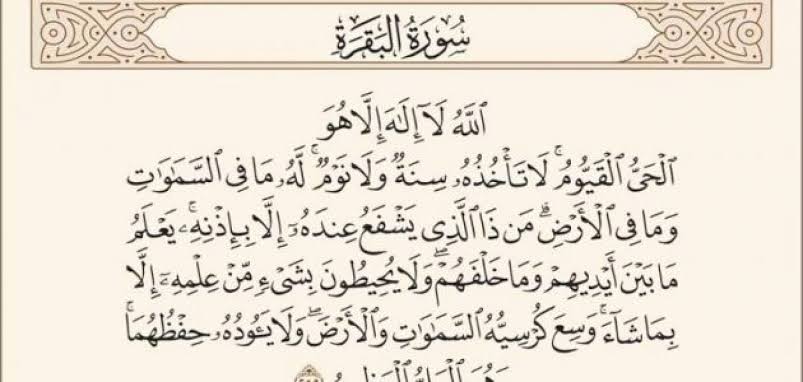 سُورَةُ البَقَرَةِ
ٱللَّهُ لَآ إِلَٰهَ إِلَّا هُوَ
ٱلْحَىُّ ٱلْقَيُّومُ ۚ لَا تَأْخُذُهُۥ سِنَةٌ وَلَا نَوْمٌ ۚ لَّهُۥ مَا فِى ٱلسَّمَٰوَٰتِ
وَمَا فِى ٱلْأَرْضِ ۗ مَن ذَا ٱلَّذِى يَشْفَعُ عِندَهُۥٓ إِلَّا بِإِذْنِهِۦ ۚ يَعْلَمُ
مَا بَيْنَ أَيْدِيهِمْ وَمَا خَلْفَهُمْ ۖ وَلَا يُحِيطُونَ بِشَىْءٍ مِّنْ عِلْمِهِۦٓ إِلَّا
بِمَا شَآءَ ۚ وَسِعَ كُرْسِيُّهُ ٱلسَّمَٰوَٰتِ وَٱلْأَرْضَ ۖ وَلَا يَـُٔودُهُۥ حِفْظُهُمَا ۚ